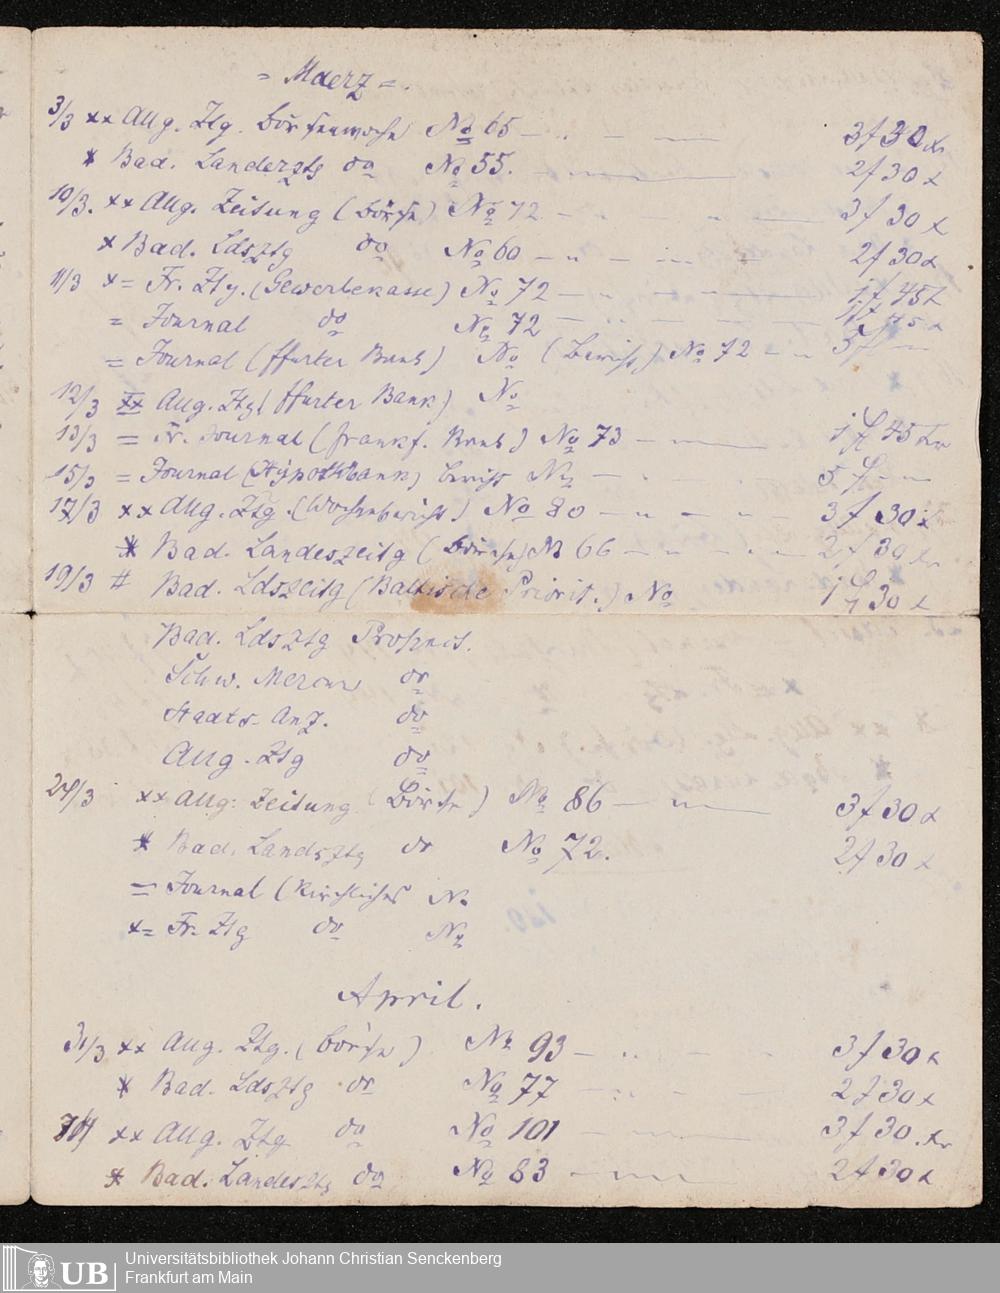 = Maerz =.
3/3 xx Allg. Ztg. Börsenwoche No 65 — „ — — 3 f 30 xr
x Bad. Landesztg do No 55. — „ — 2 f 30 x
10/3. xx Allg. Zeitung (Börse) No 72 — „ — „ — 3 f 30 x
x Bad. Ldsztg do No 60 — „ — „ — 2 f 30 x
11/3 x= Fr. Ztg. (Gewerbekasse) No 72 — „ — 1 f 45 x
= Journal do No 72 — „ — 1 f 45 x
= Journal (ffurter Bank) No (Bericht) No 72 — „ 5 f —
12/3 xx Allg. Ztg (ffurter Bank) No
13/3 = Fr. Journal (Frankf. Bank) No 73 — 1 f 45 xr
15/3 = Journal (Hypothbank) Bericht No — „ — 5 f —
17/3 xx Allg. Ztg. (Wochenbericht) No 80 — „ — „ — 3 f 30 x
x Bad. Landeszeitg (Börse) No 66 — „ — „ — 2 f 30 xr
19/3 # Bad. Ldszeitg (Baltische Priorit.) No 1 f 30 x
Bad. Ldsztg Prospect.
Schw. Mercur do
Staats-Anz. do
Allg. Ztg do
24/3 xx Allg: Zeitung (Börse) No 86 — „ — 3 f 30 x
x Bad. Landsztg do No 72. 2 f 30 x
= Journal (Kirchliches No
x= Fr. Ztg do No
April.
31/3 xx Allg. Ztg. (Börse) No 93 — „ — 3 f 30 x
x Bad. Ldsztg do No 77 — „ — 2 f 30 x
xx Allg. Ztg do No 101 — 3 f 30. xr
x Bad. Landesztg do No 83 — 2 f 30 x
UB
Universitätsbibliothek Johann Christian Senckenberg
Frankfurt am Main